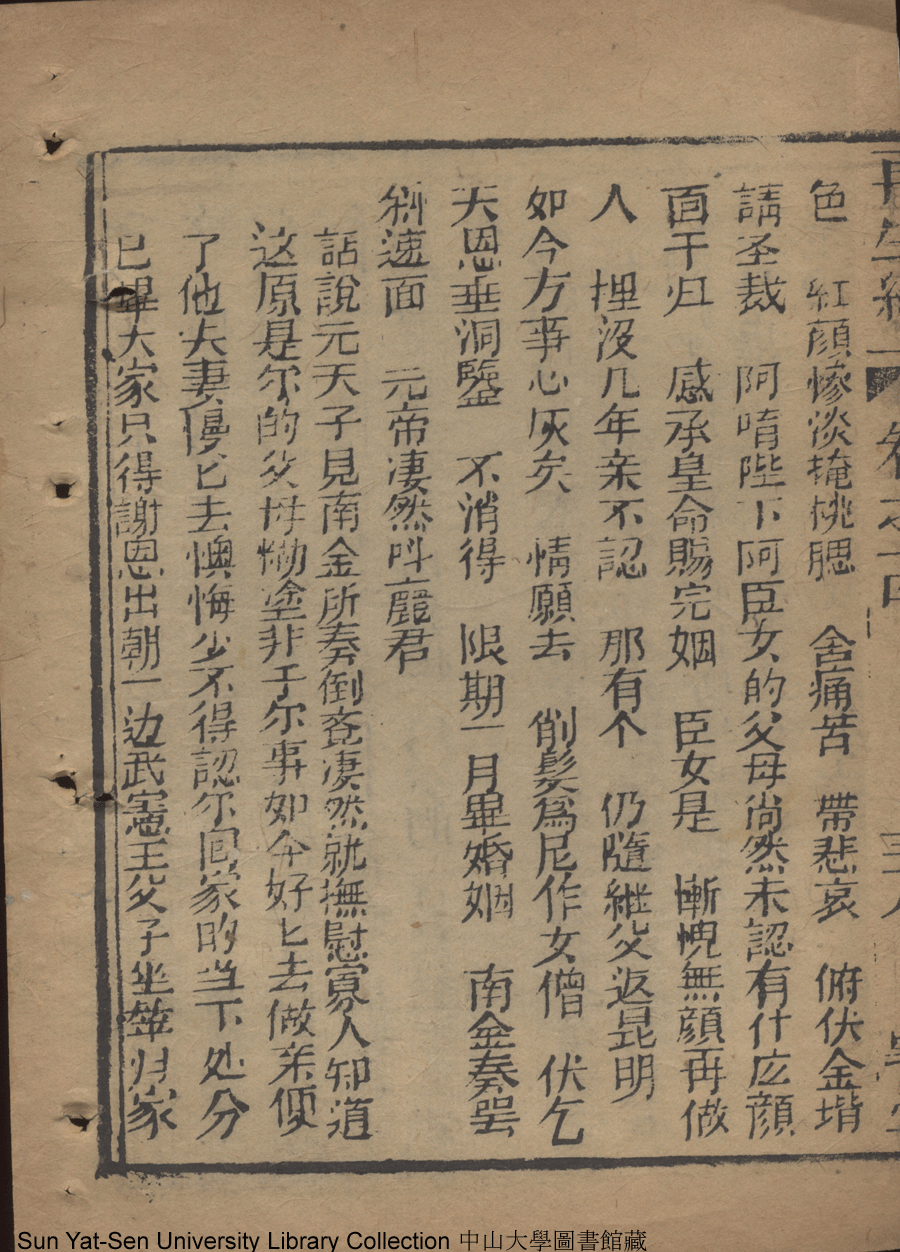 再生縁 卷之十四
色 紅顔慘淡掩桃腮 含痛苦 帶悲哀 俯伏金堦
請圣裁 阿唷陛下阿臣女的父母尚然未認有什庅顔
面干归 感承皇命賜完姻 臣女是 慚愧無顔再做
人 埋没几年亲不認 那有个 仍隨継父返昆明
如今方事心灰矣 情願去 削髮爲尼作女僧 伏乞
天恩垂洞鑒 不消得 限期一月畢婚姻 南金奏罢
速面 元帝凄然呌麗君
話説元天子見南金所奏倒凄然就撫慰寡人知道
这原是尔的父母懒塗非干尔事如今好匕去做亲便
了他夫妻匕去懊悔少不得認尔回家的当下处分
已畢大家只得謝恩出朝一边武憲王父子坐輦归家
Sun Yat-Sen University Library Collection 中山大學圖書館藏